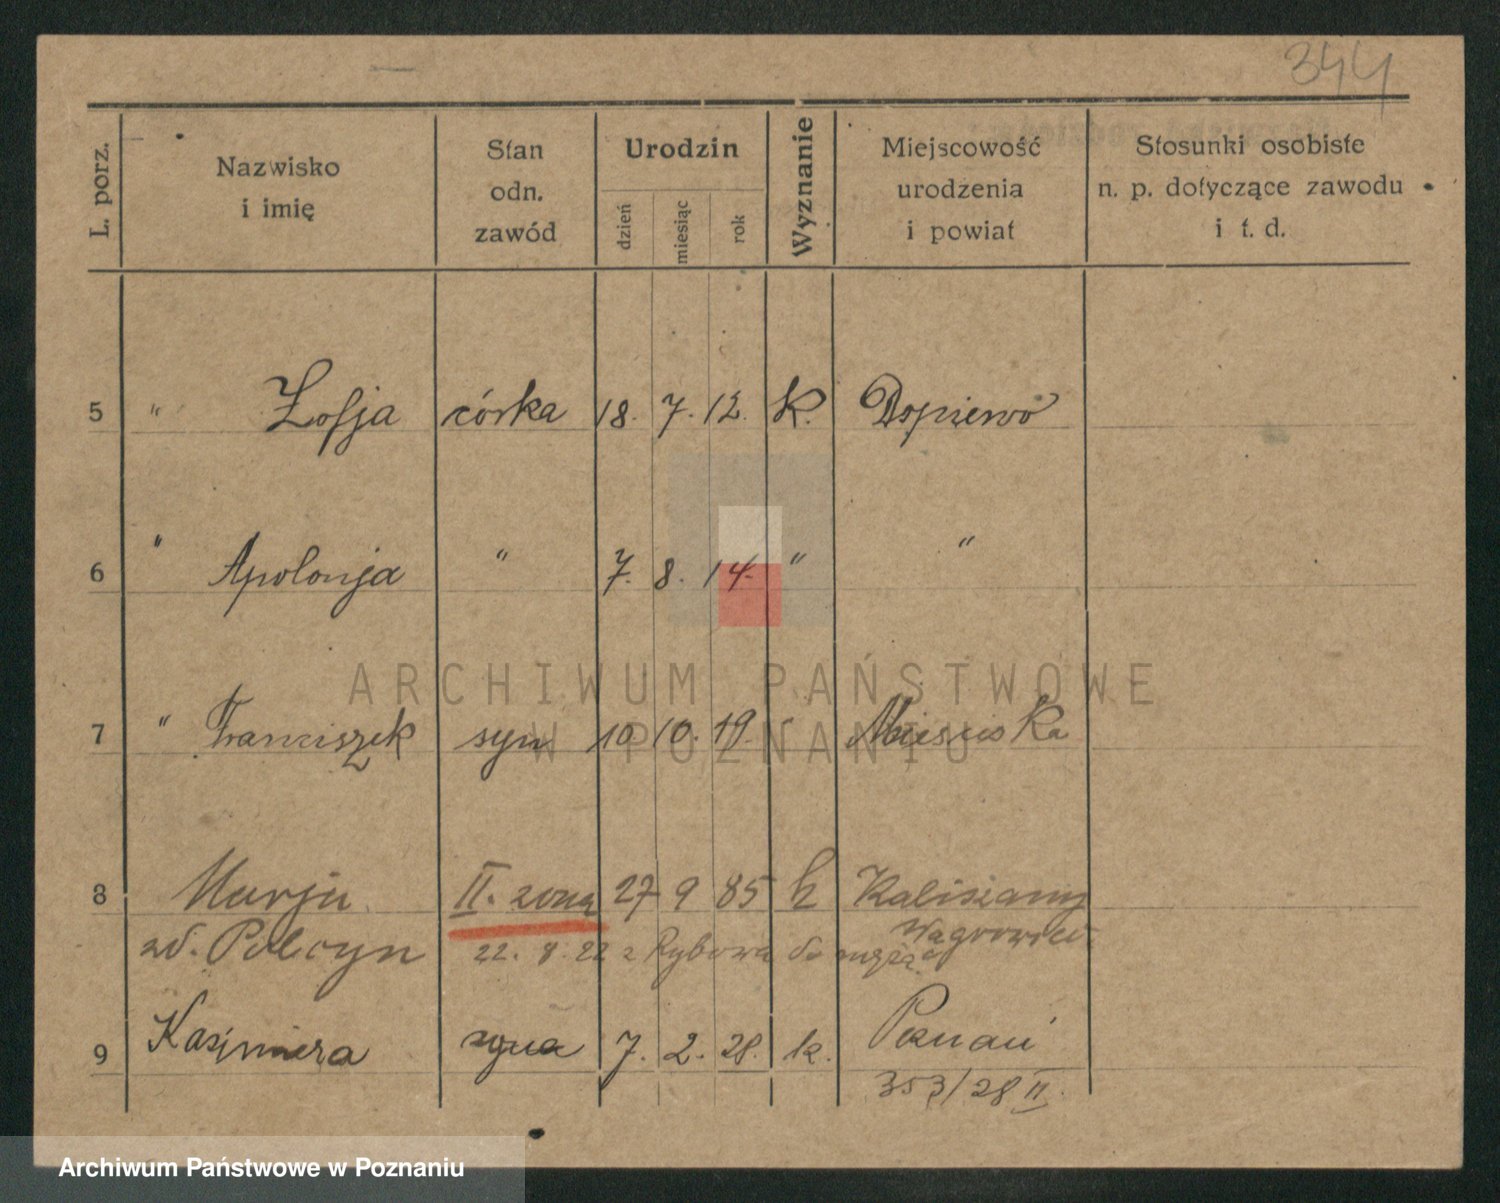 344
L. porz.
Nazwisko
i imię
Stan
odn.
zawód
Urodzin
dzień
miesiąc
rok
Wyznanie
Miejscowość
urodzenia
i powiat
Stosunki osobiste
n. p. dotyczące zawodu
i t. d.
5 " Zofja córka 18. 7. 12. K. Dopiewo
6 " Apolonja " 7. 8. 14. " "
7 " Franciszek syn 10 10. 19
8 Marja II. żona 27 9 85 k Kaliszany
Wągrowiec
zd. Polcyn 22. 8. 22 z Rybowa do męża
9 Kazimiera 7. 2. 28. k. Poznań
353/28 II.
ARCHIWUM PAŃSTWOWE
W POZNANIU
Archiwum Państwowe w Poznaniu